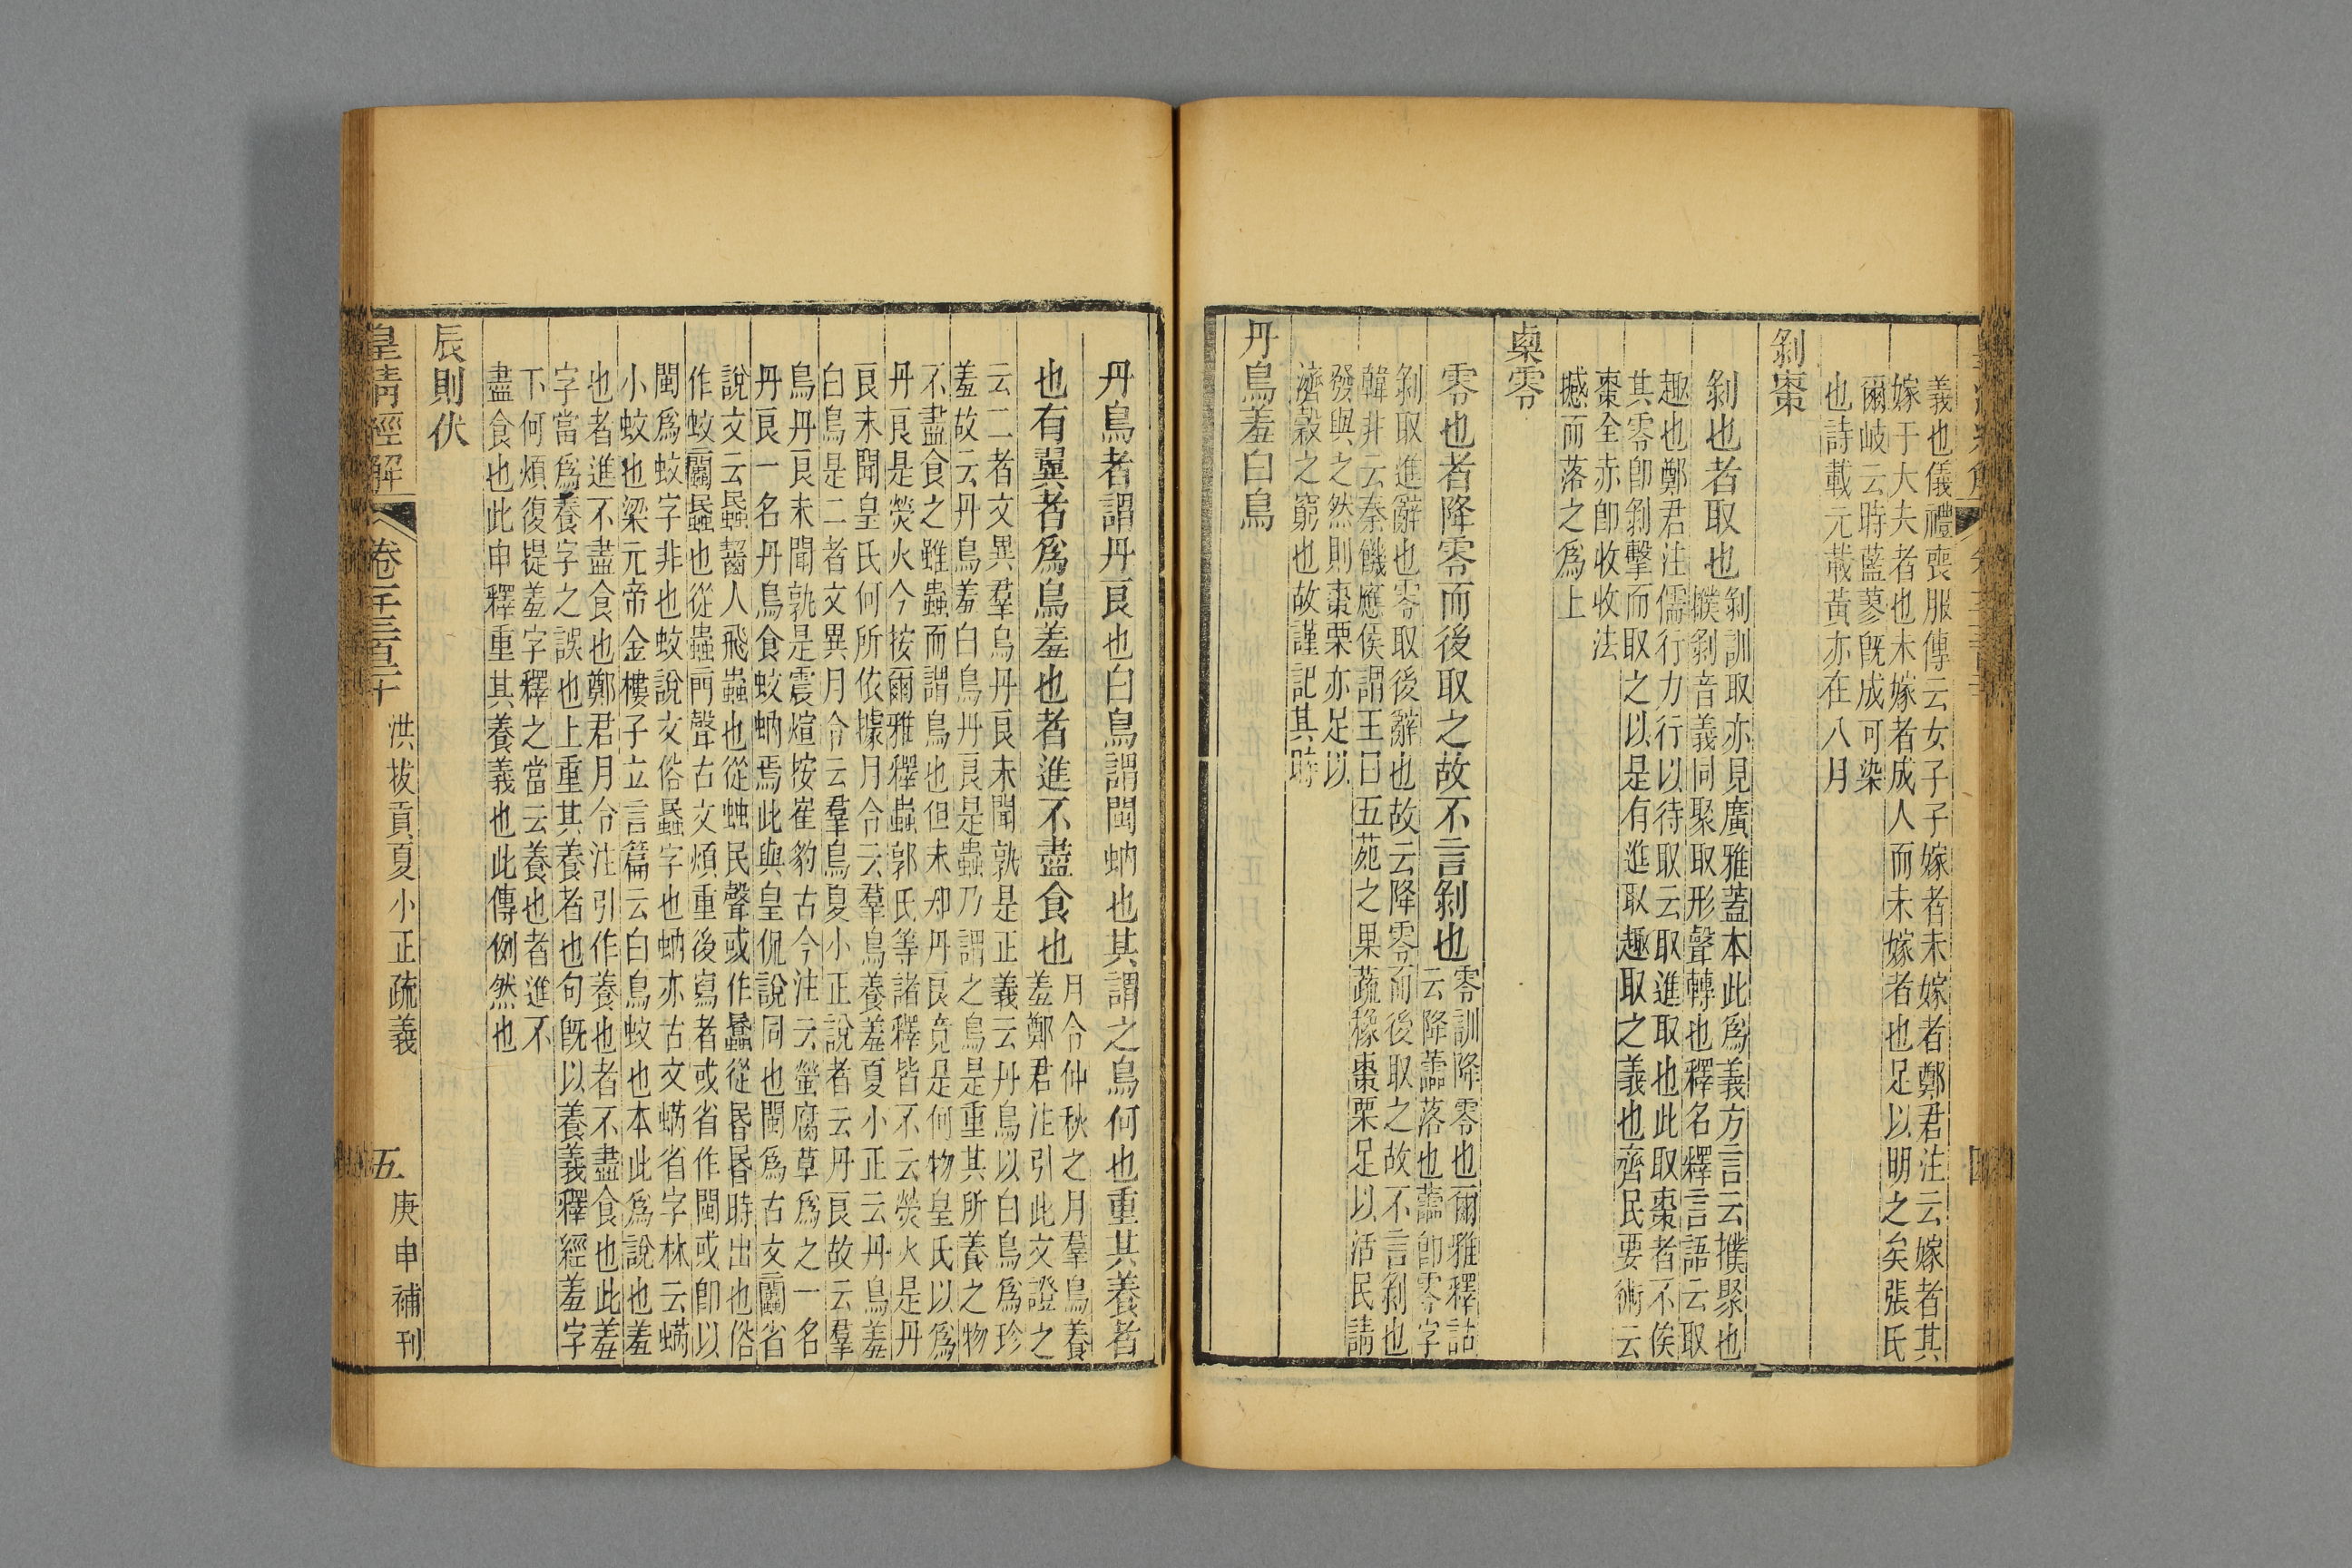 義也儀禮喪服傳云女子子嫁者未嫁者鄭君注云嫁者其
嫁于大夫者也未嫁者成人而未嫁者也足以明之矣張氏
爾岐云時藍蓼旣成可染
也詩載元載黃亦在八月
剝棗
剝也者取也
剝訓取亦見廣雅蓋本此爲義方言云撲聚也
撲剝音義同聚取形聲轉也釋名釋言語云取
趣也鄭君注儒行力行以待取云取進取也此取棗者不俟
其零卽剝擊而取之以是有進取趣取之義也齊民要術云
棗全赤卽收收法
撼而落之爲上
㮚零
零也者降零而後取之故不言剝也
零訓降零也爾雅釋詁
云降蘦落也蘦卽零字
剝取進辭也零取後辭也故云降零而後取之故不言剝也
韓非云秦饑應侯謂王曰五苑之果蔬橡棗栗足以活民請
發與之然則棗栗亦足以
濟穀之窮也故謹記其時
丹鳥羞白鳥
四
丹鳥者謂丹良也白鳥謂閩蚋也其謂之鳥何也重其養者
也有翼者爲鳥羞也者進不盡食也
月令仲秋之月羣鳥養
羞鄭君注引此文證之
云二者文異羣鳥丹良未聞孰是正義云丹鳥以白鳥爲珍
羞故云丹鳥羞白鳥丹良是蟲乃謂之鳥是重其所養之物
不盡食之雖蟲而謂鳥也但未知丹良竟是何物皇氏以爲
丹良是熒火今按爾雅釋蟲郭氏等諸釋皆不云熒火是丹
良未聞皇氏何所依據月令云羣鳥養羞夏小正云丹鳥羞
白鳥是二者文異月令云羣鳥夏小正說者云丹良故云羣
鳥丹良未聞孰是震煊按崔豹古今注云螢腐草爲之一名
丹良一名丹鳥食蚊蚋焉此與皇侃說同也閩爲古文𧕴省
說文云䘇齧人飛蟲也從䖵民聲或作𧕙從昬昬時出也俗
作蚊𧕴䘇也從蟲門聲古文煩重後寫者或省作閩或卽以
閩爲蚊字非也蚊說文俗䘇字也蚋亦古文蜹省字林云蜹
小蚊也梁元帝金樓子立言篇云白鳥蚊也本此爲說也羞
也者進不盡食也鄭君月令注引作養也者不盡食也此羞
字當爲養字之誤也上重其養者也句旣以養義釋經羞字
下何煩復提羞字釋之當云養也者進不
盡食也此申釋重其養義也此傳例然也
辰則伏
皇淸經解
卷一千三百二十
洪拔貢夏小正疏義
五
庚申補刊